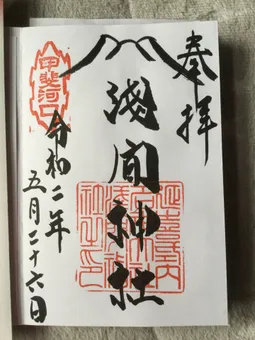 奉拝
淺间神社
令和二年
五月二十六日
甲斐河口